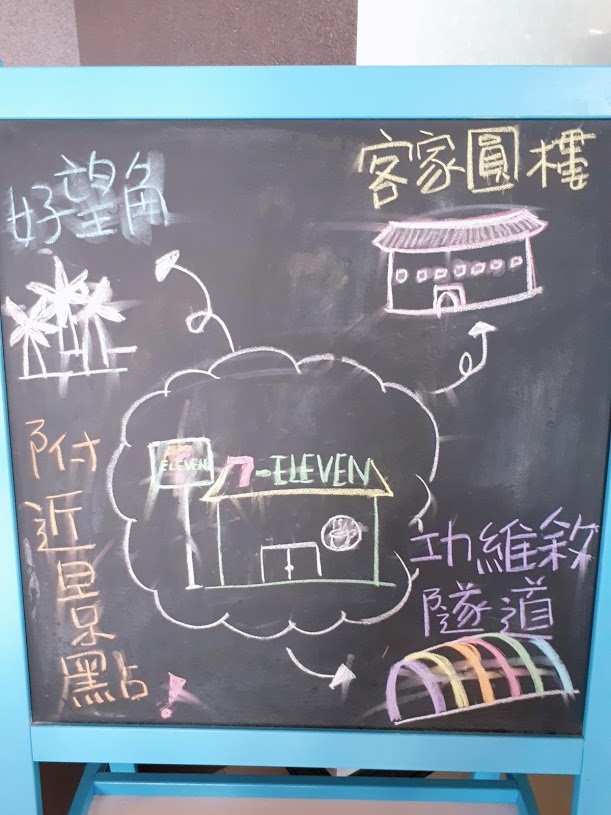 好望角
客家圓樓
7
ELEVEN
7-ELEVEN
功維敘
隧道
附近景點!